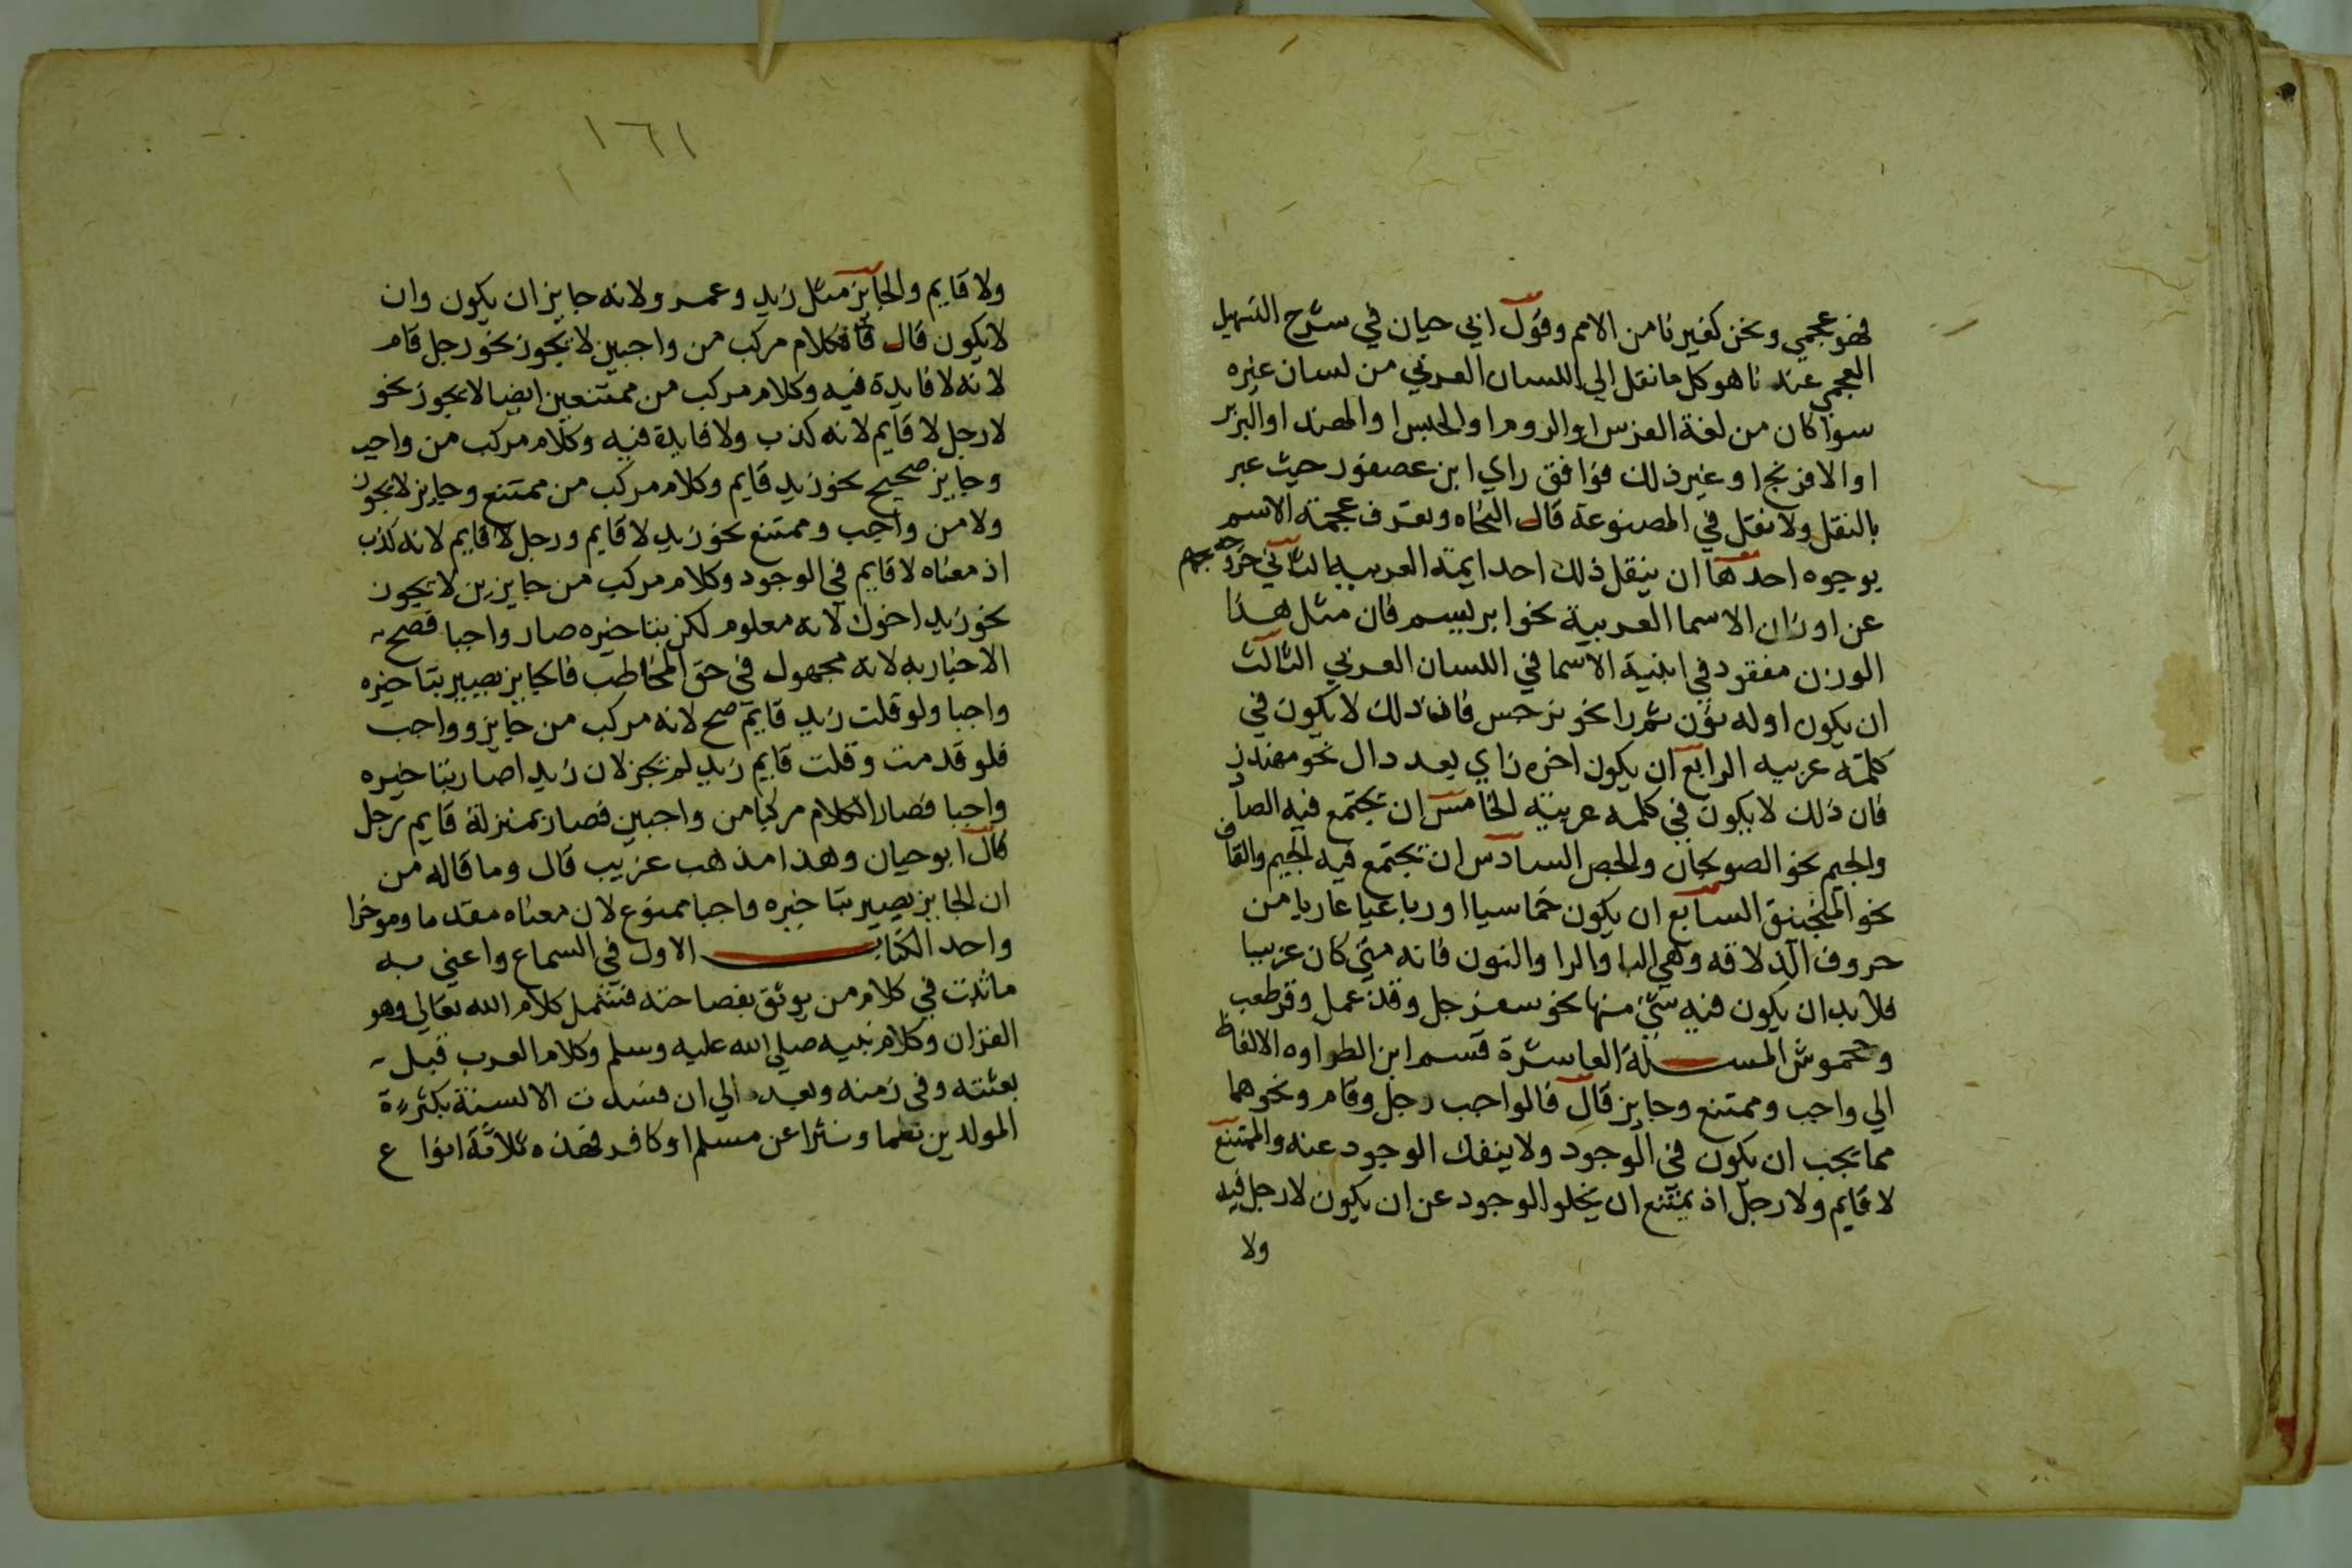 فهو عجمي ونحن كغيرنا من الامم وقول ابي حيان في شرح التسهيل
العجمي عندنا هو كل ما نقل الي اللسان العربي من لسان غيره
سوا كان من لغة الفرس او الروم او الحبس او الهند او البربر
او الافرنج او غير ذلك فوافق راي ابن عصفور حيث عبر
بالنقل ولا نقل في المصنوعة قال النحاه وتعرف عجمة الاسم
بوجوه احدها ان ينقل ذلك احد ايمة العربيه الثاني خروجه
عن اوزان الاسما العربية نحو ابريسم فان مثل هذا
الوزن مفقود في ابنية الاسما في اللسان العربي الثالث
ان يكون اوله نون ثم را نحو نرجس فان ذلك لا يكون في
كلمة عربيه الرابع ان يكون اخره زاي بعد دال نحو مهندز
فان ذلك لا يكون في كلمه عربيته الخامس ان تجتمع فيه الصاد
والجيم نحو الصولجان والجص السادس ان تجتمع فيه الجيم والقاف
نحو المنجنيق السابع ان يكون خماسيا او رباعيا عاريا من
حروف الذلاقه وهي البا والرا والنون فانه متي كان عربيا
فلا بد ان يكون فيه شي منها نحو سفرجل وقذعمل وقرطعب
وجحموش المسئلة العاشرة قسم ابن الطراوه الالفاظ
الي واجب وممتنع وجايز قال فالواجب رجل وقام ونحوهما
مما يجب ان يكون في الوجود ولا ينفك الوجود عنه والممتنع
لا قايم ولا رجل اذ يمتنع ان يخلو الوجود عن ان يكون لا رجل فيه
ولا
١٦١
ولا قايم والجايز مثل زيد وعمرو لانه جايز ان يكون وان
لا يكون قال فكلام مركب من واجبين لا يجوز نحو رجل قام
لانه لا فايدة فيه وكلام مركب من ممتنعين ايضا لا يجوز نحو
لا رجل لا قايم لانه كذب ولا فايدة فيه وكلام مركب من واجب
وجايز صحيح نحو زيد قايم وكلام مركب من ممتنع وجايز لا يجوز
ولا من واجب وممتنع نحو زيد لا قايم ورجل لا قايم لانه كذب
اذ معناه لا قايم في الوجود وكلام مركب من جايزين لا يجوز
نحو زيد اخوك لانه معلوم لكن بتاخيره صار واجبا فصح
الاخبار به لانه مجهول في حق المخاطب فالجايز يصير بتاخيره
واجبا ولو قلت زيد قايم صح لانه مركب من جايز وواجب
فلو قدمت وقلت قايم زيد لم يجز لان زيد اصار بتاخيره
واجبا فصار الكلام مركبا من واجبين فصار بمنزلة قايم رجل
قال ابو حيان وهذا مذهب غريب قال وما قاله من
ان الجايز يصير بتاخيره واجبا ممنوع لان معناه مقدما وموخرا
واحد الكتاب الاول في السماع واعني به
ما ثبت في كلام من يوثق بفصاحته فتشمل كلام الله تعالي وهو
القران وكلام نبيه صلي الله عليه وسلم وكلام العرب قبل
بعثته وفي زمنه وبعده الي ان فسدت الالسنة بكثرة
المولدين نظما ونثرا عن مسلم او كافر فهذه ثلاثة انواع